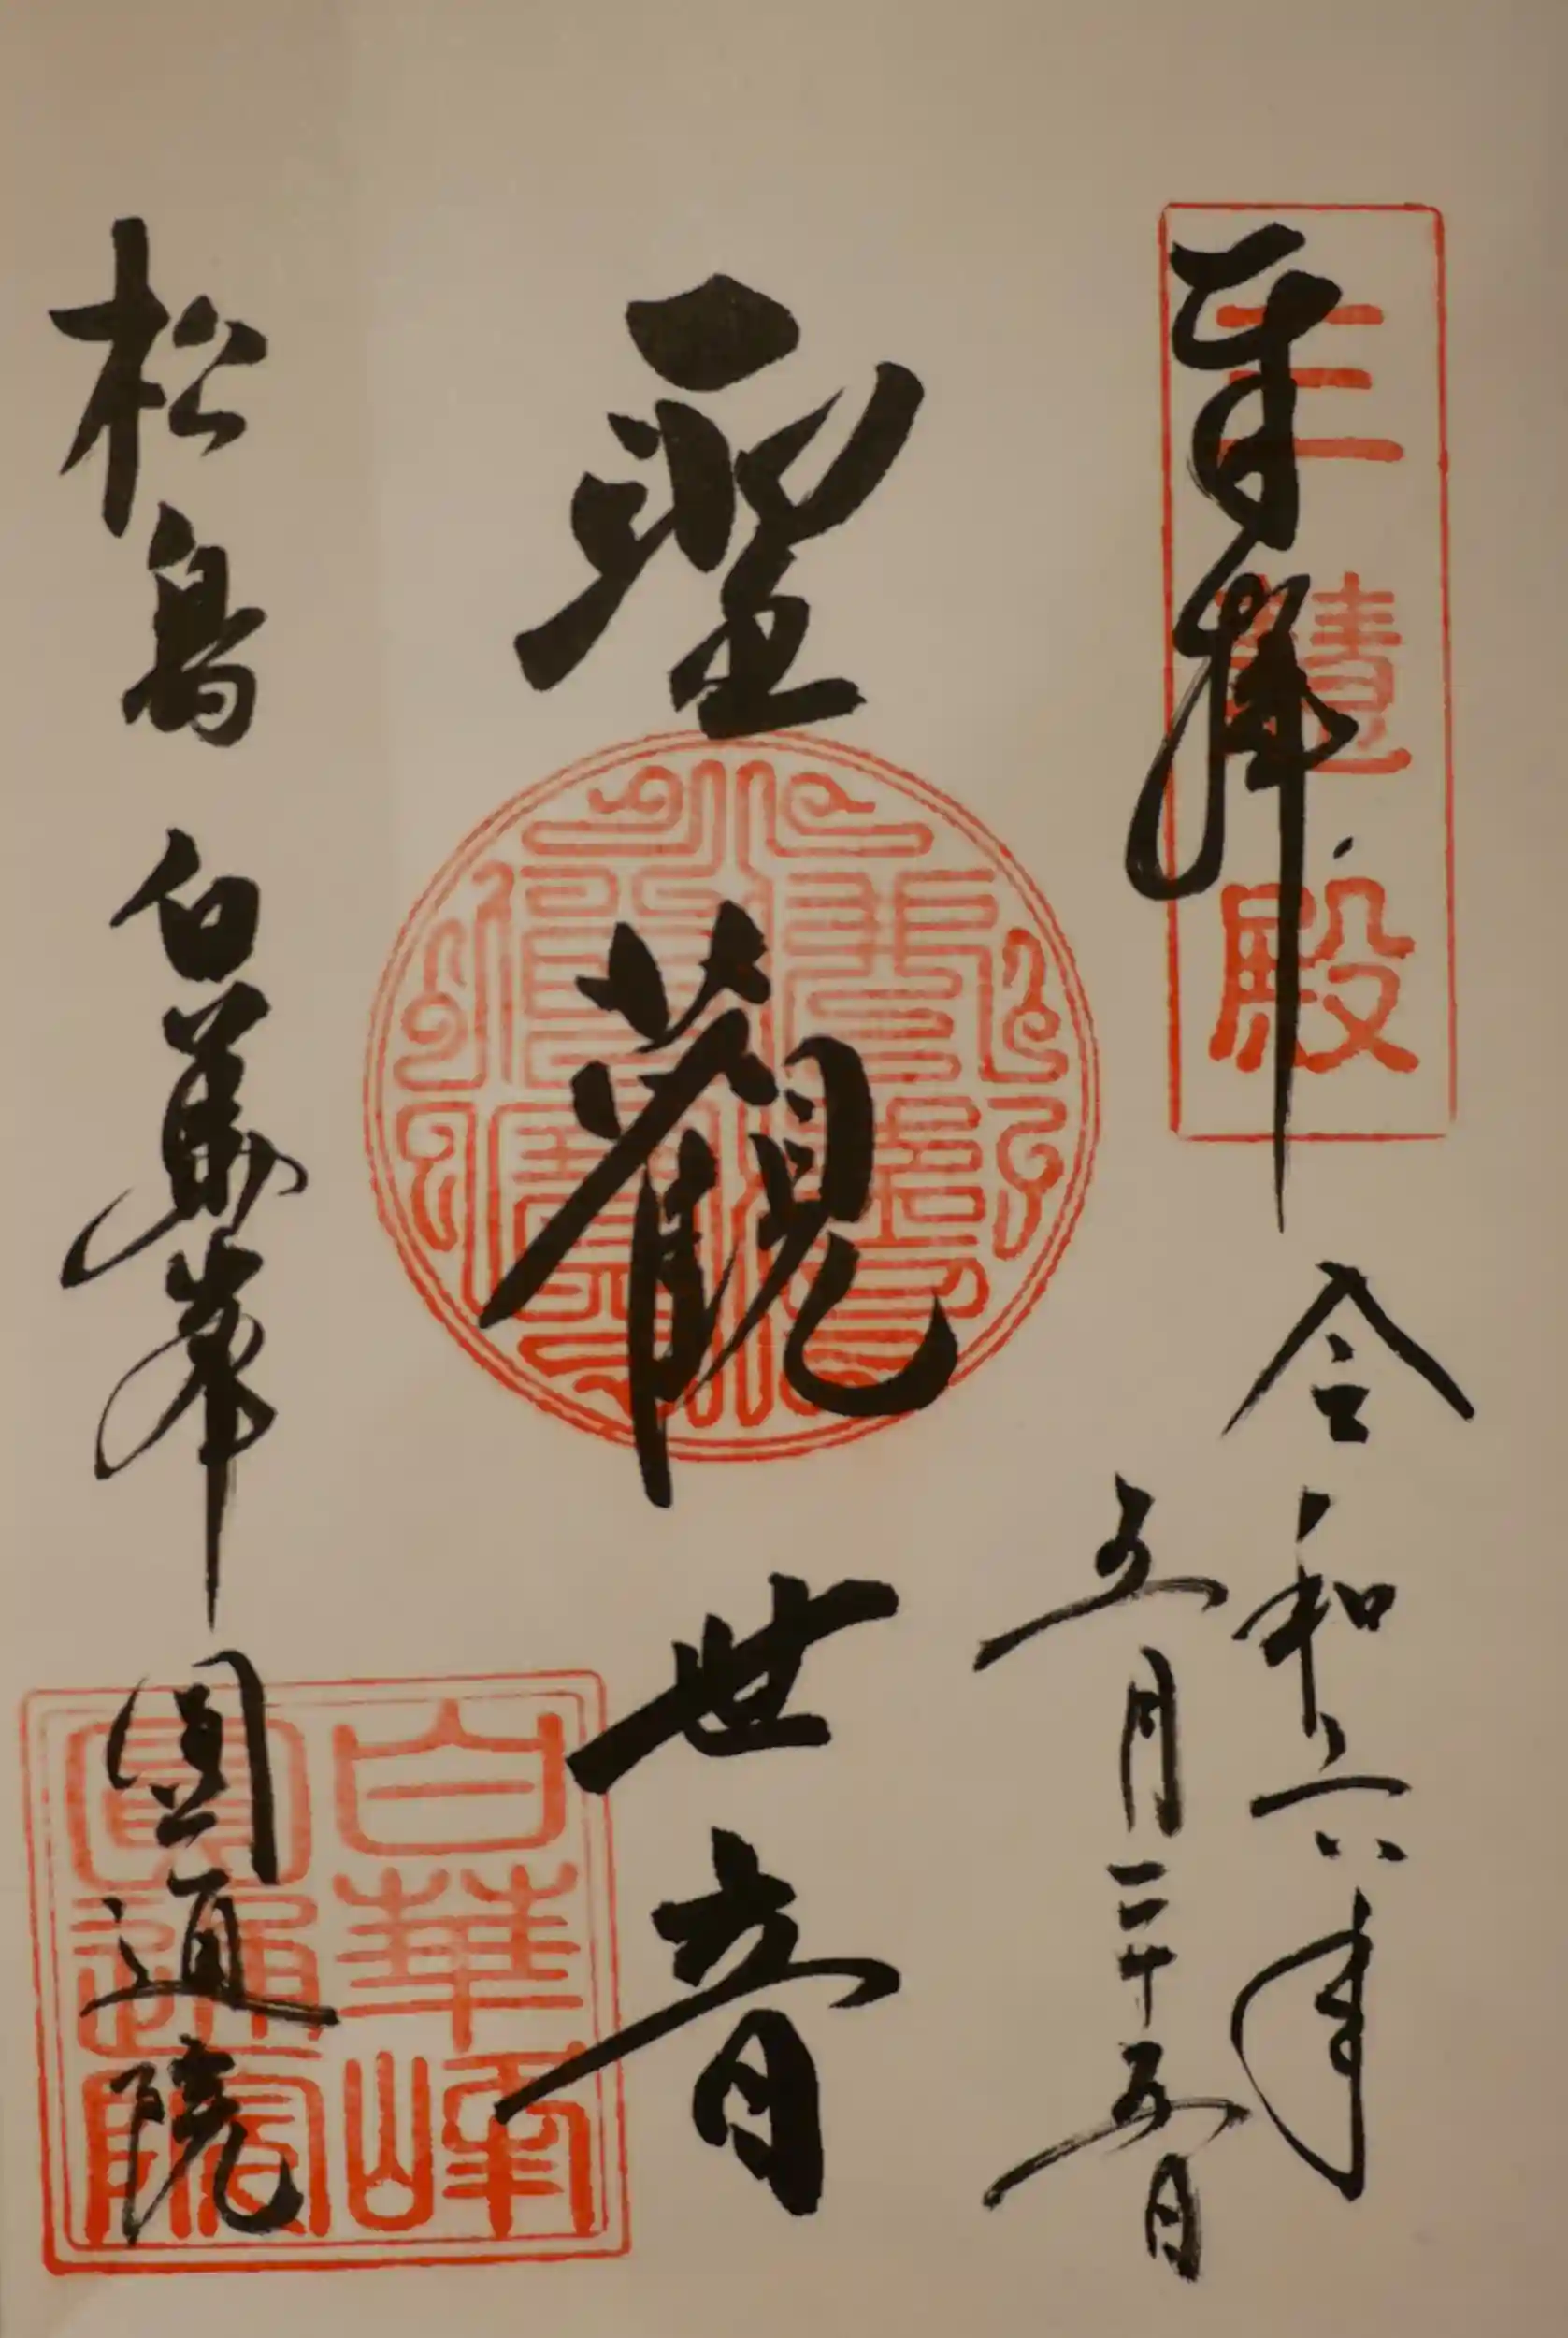 奉拜
三慧殿
令和六年
五月二十五日
聖觀世音
松島 白華峯 圓通院
白華峰
圓通院